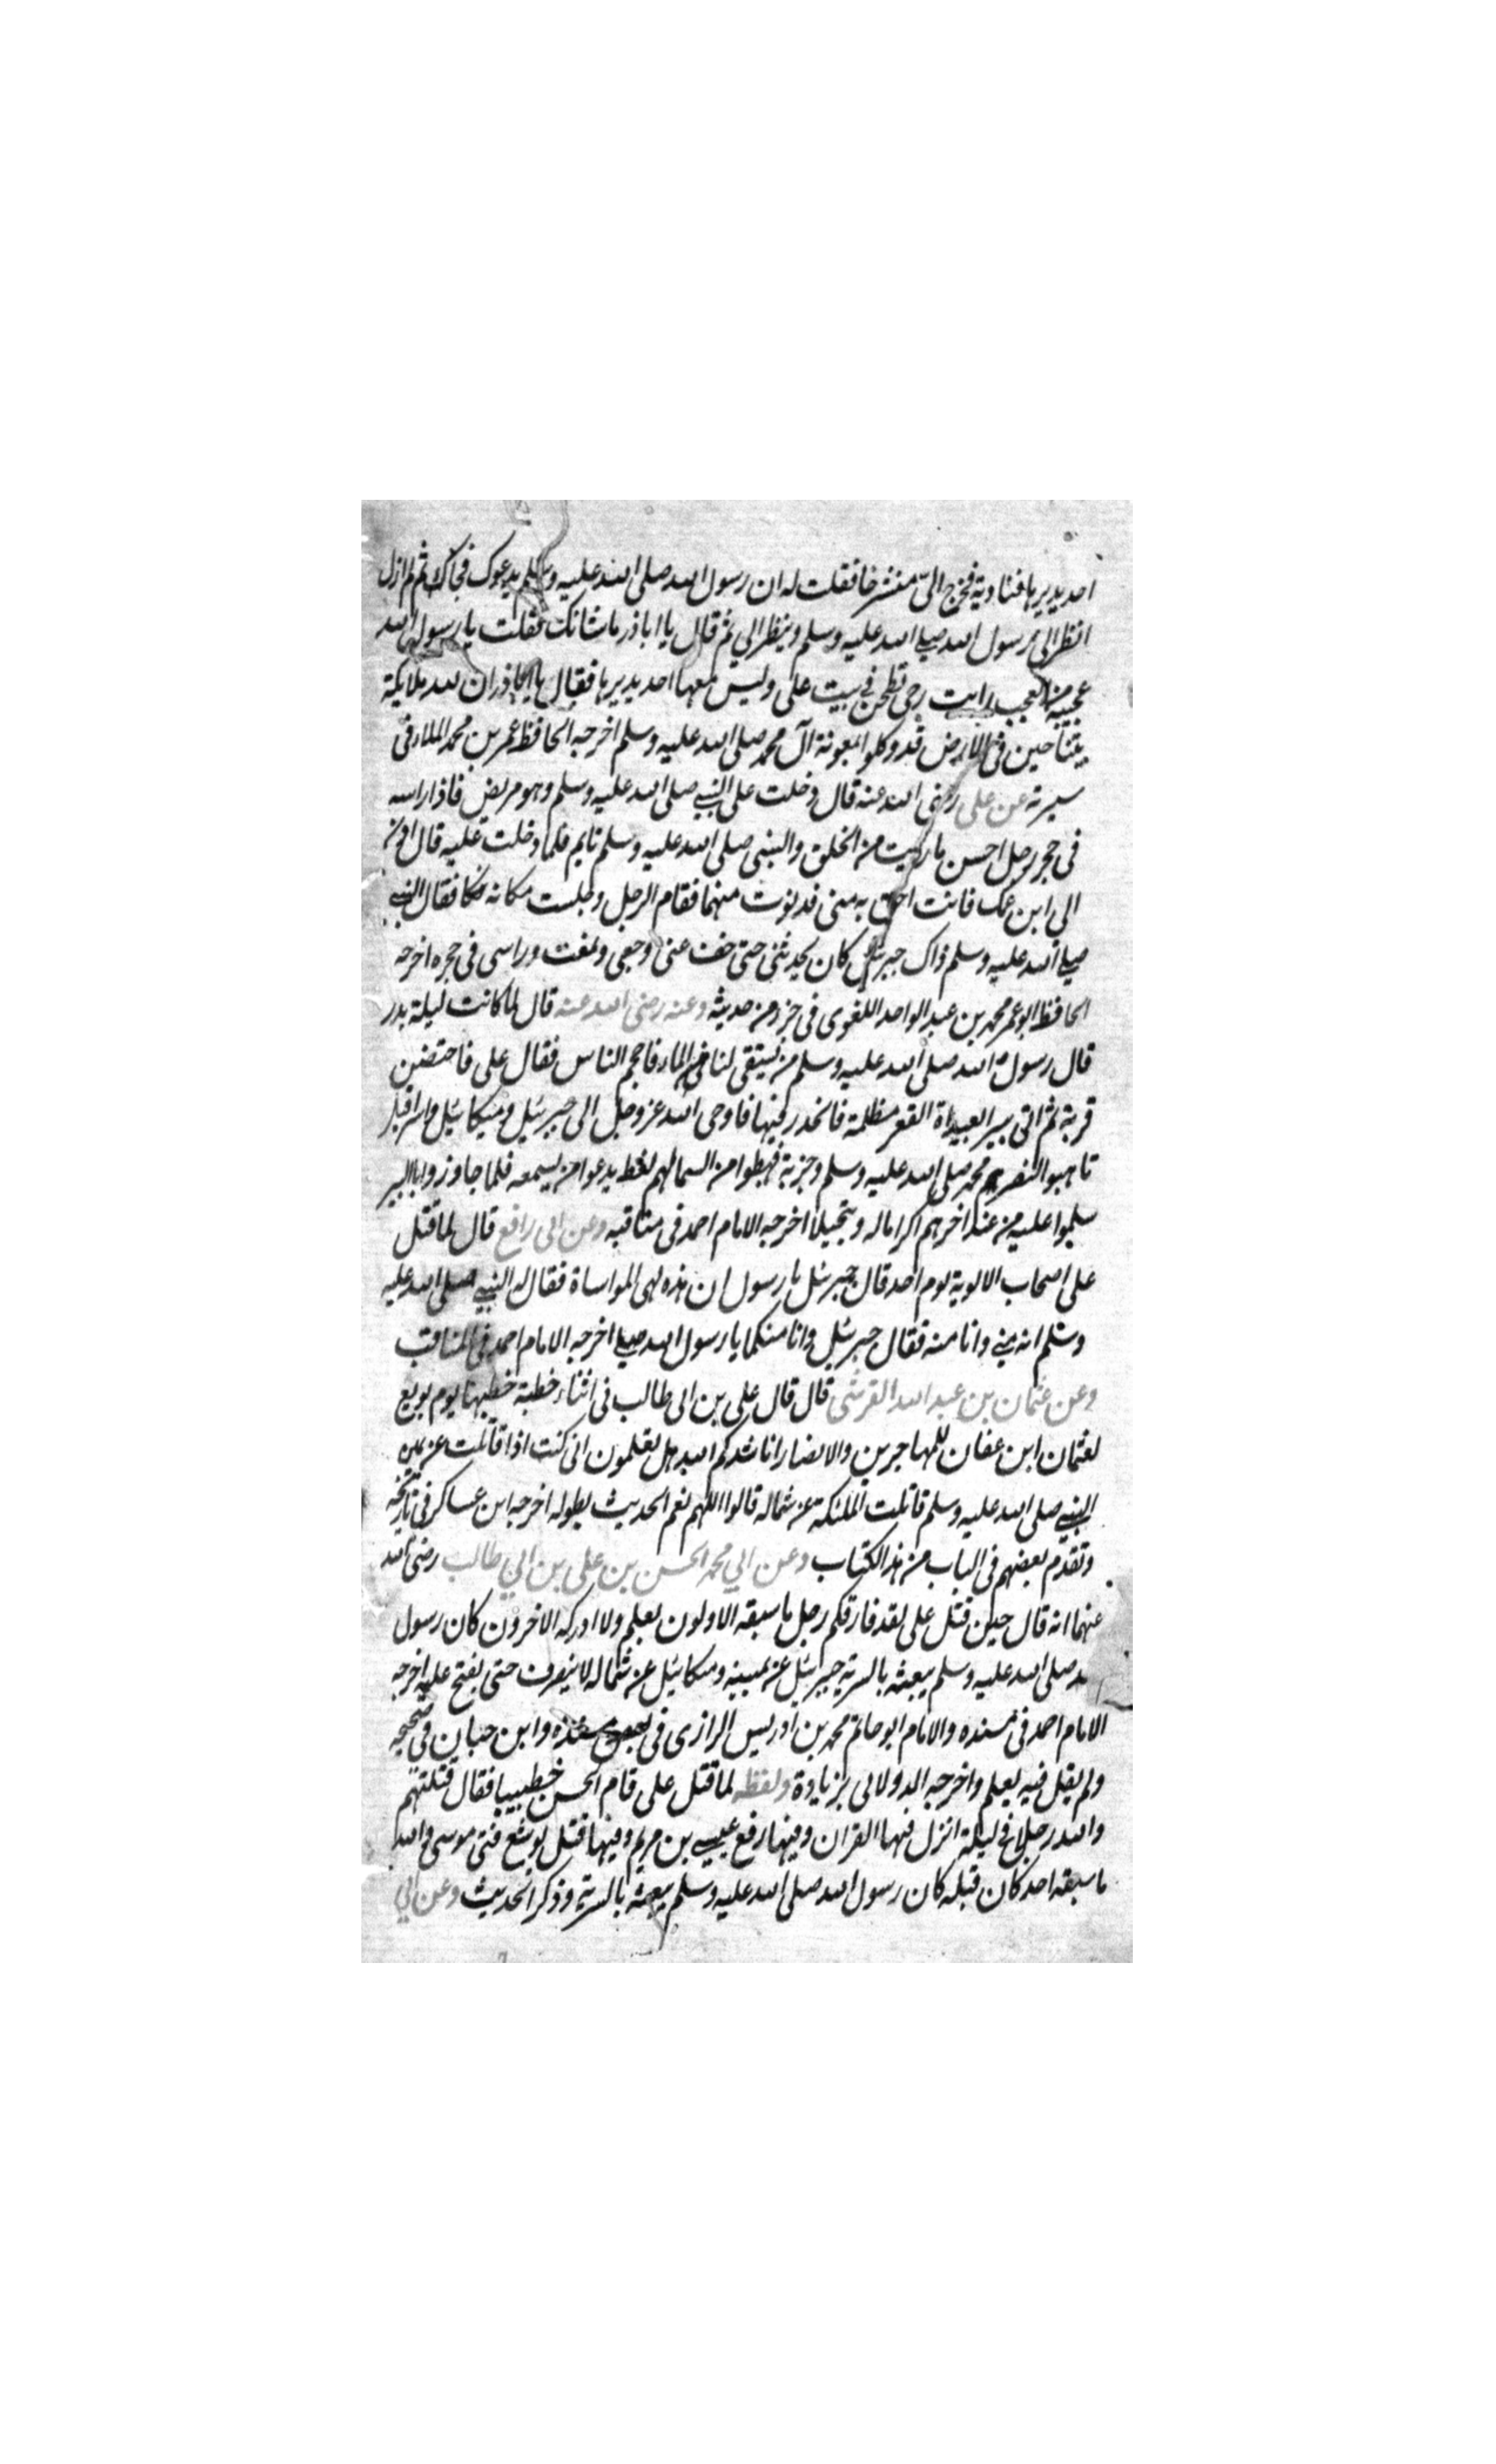 احد يديرها فناديته فخرج الىّ منشرحا فقلت له ان رسول الله صلى الله عليه وسلم يدعوك فجاك ثم لم ازل
انظر الى رسول الله صلى الله عليه وسلم وينظر الي ثم قال يا اباذر ما شانك فقلت يا رسول الله
عجيبه من العجب رايت رحى تطحن في بيت على وليس معها احد يديرها فقال يا اباذر ان لله ملايكة
يتناحين فى الارض قد وكلوا بمعونة آل محمد صلى الله عليه وسلم اخرجه الحافظ عمر بن محمد الملاء فى
سيرته عن على رضى الله عنه قال دخلت على النبي صلى الله عليه وسلم وهو مريض فاذا راسه
فى حجر رجل احسن ما رايت من الخلق والنبى صلى الله عليه وسلم نايم فلما دخلت عليه قال ادن
الى ابن عمك فانت احق به منى فدنوت منهما فقام الرجل وجلست مكانه فقال النبي
صلى الله عليه وسلم ذاك جبرئيل كان يحدثنى حتى خف عنى وجعى ونمت وراسى فى حجره اخرجه
الحافظ ابو عمر محمد بن عبد الواحد اللغوى فى جزء من حديثه وعنه رضى الله عنه قال لما كانت ليلة بدر
قال رسول الله صلى الله عليه وسلم من يستقى لنا من الماء فاحجم الناس فقال على فاحتضن
قربة ثم اتى بير ابعيداة القعر مظلمة فانحدر فيها فاوحى الله عز وجل الى جبرئيل وميكائيل واسرافيل
تاهبوا لنصر محمد صلى الله عليه وسلم وحزبه فهبطوا من السما لهم لغط يدعوا من يسمعه فلما جاوزوا بالبير
سلموا عليه من عند اخرهم اكراما له وتبجيلا اخرجه الامام احمد فى مناقبه وعن ابى رافع قال لما قتل
على اصحاب الالوية يوم احد قال جبرئيل يا رسول ان هذه لهى المواساة فقال له النبي صلى الله عليه
وسلم انه مني وانا منه فقال جبرئيل وانا منكما يا رسول الله صلى اخرجه الامام احمد فى المناقب
وعن عثمان بن عبد الله القرشى قال قال على بن ابى طالب فى اثناء خطبة خطبها يوم بويع
لعثمان ابن عفان للمهاجرين والانصار اناشدكم الله هل تعلمون انى كنت اذا قاتلت عن يمين
النبي صلى الله عليه وسلم قاتلت الملئكة عن شماله قالوا اللهم نعم الحديث بطوله اخرجه ابن عساكر فى تاريخه
وتقدم بعضهم فى الباب من هذا الكتاب وعن ابي محمد الحسن بن على بن ابي طالب رضى الله
عنهما انه قال حين قتل على لقد فارقكم رجل ما سبقه الاولون بعلم ولا ادركه الاخرون كان رسول
الله صلى الله عليه وسلم يبعثه بالسرية جبرئيل عن يمينه وميكائيل عن شماله لا ينصرف حتى يفتح عليه اخرجه
الامام احمد فى مسنده والامام ابو حاتم محمد بن ادريس الرازى فى وابن حبان في صحيحه
ولم يقل فيه بعلم واخرجه الدولابى بزيادة ولفظه لما قتل على قام الحسن خطيبا فقال قتلتم
والله رجلا في ليلة انزل فيها القران وفيها رفع عيسى بن مريم وفيها قتل يوشع فتى موسى والله
ما سبقه احد كان قبله كان رسول الله صلى الله عليه وسلم يبعثه بالسرية وذكر الحديث وعن ابي